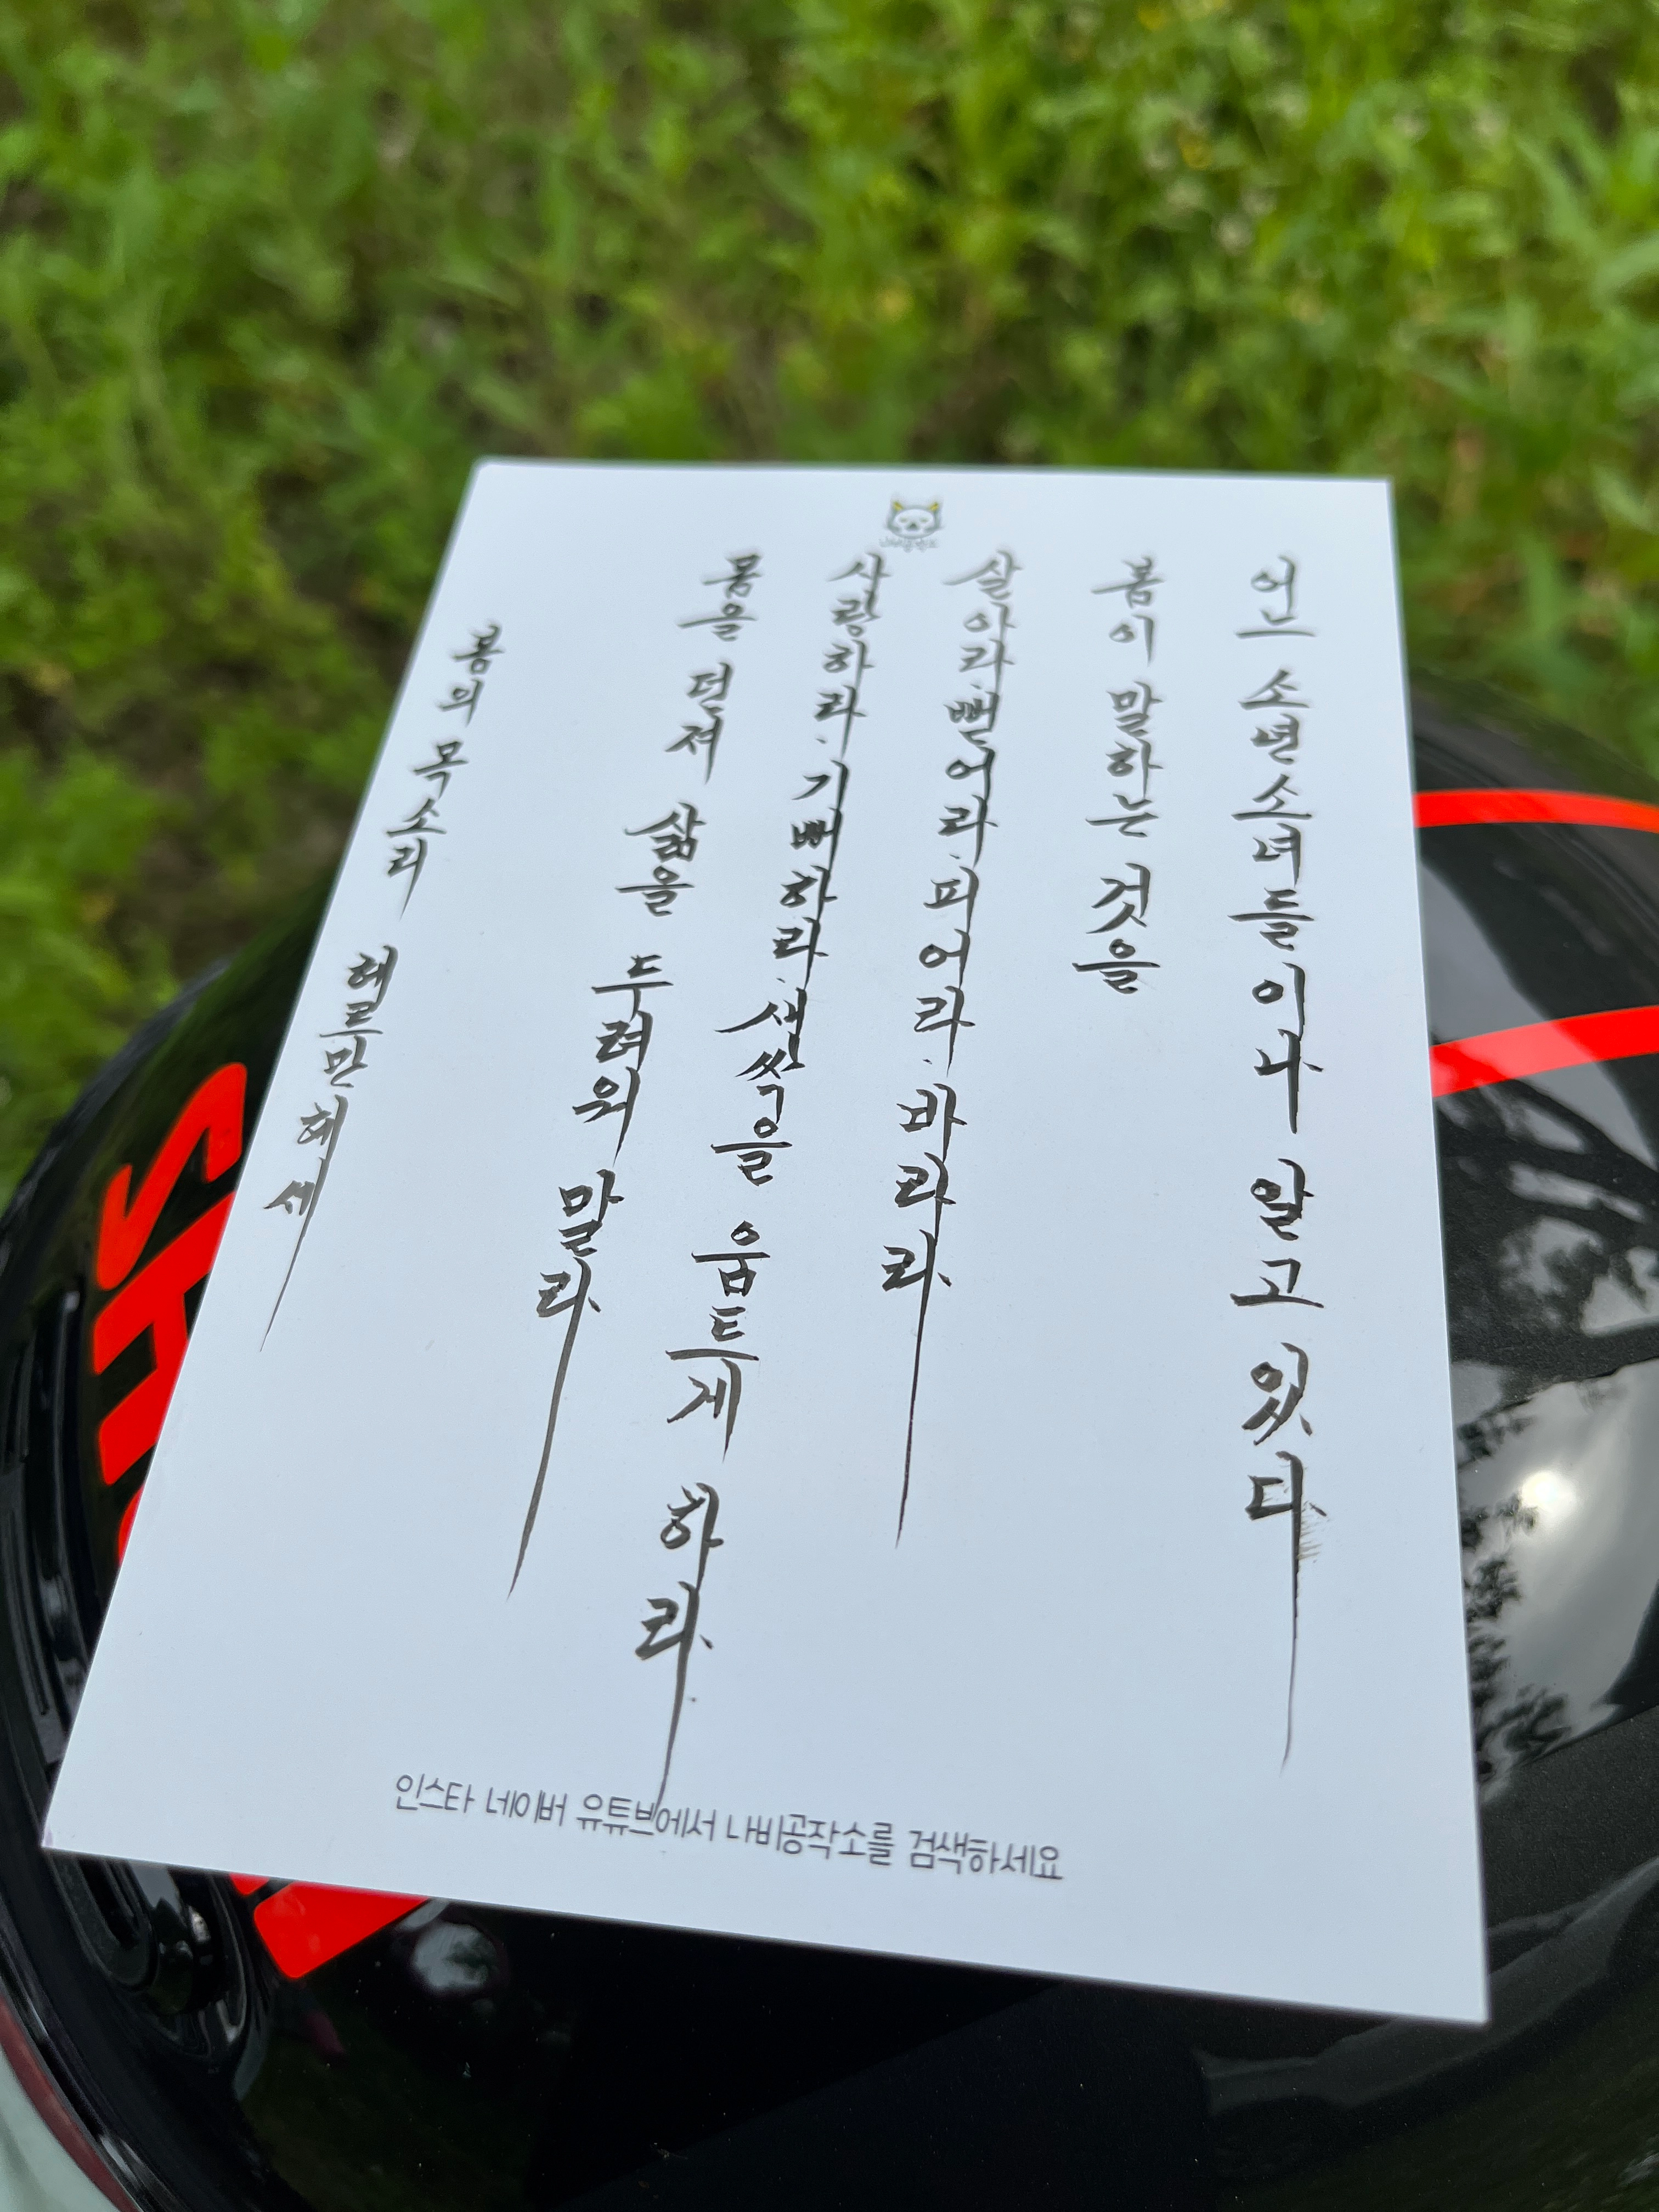 어느 소년소녀들이나 알고 있다
봄이 말하는 것을
살아라.뻗어라.피어라.바라라
사랑하라.기뻐하라.새싹을 움트게 하라
몸을 던져 삶을 두려워 말라
봄의 목소리 헤르만헤세
인스타 네이버 유튜브에서 나비공작소를 검색하세요